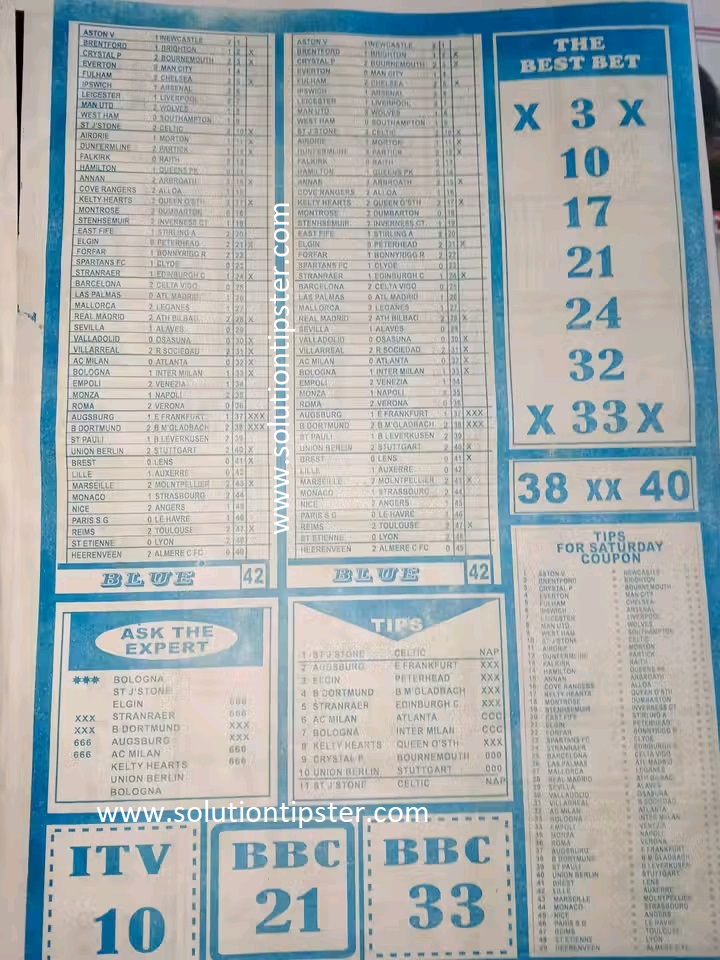 ASTON V 1 NEWCASTLE 2 1
BRENTFORD 1 BRIGHTON 2 X
CRYSTAL P 2 BOURNEMOUTH 3 X
EVERTON 0 MAN CITY 4
FULHAM 2 CHELSEA 5 X
IPSWICH 1 ARSENAL 6
LEICESTER 1 LIVERPOOL
MAN UTD 2 WOLVES
WEST HAM 3 SOUTHAMPTON
ST J'STONE 2 CELTIC 2 10 X
AIRDRIE 1 MORTON 11 X
DUNFERMLINE 2 PARTICK X
FALKIRK 0 RAITH
HAMILTON 1 QUEENS PK
ANNAN 2 ARBROATH X
COVE RANGERS 2 ALLOA
KELTY HEARTS 2 QUEEN O'STH 17 X
MONTROSE 2 DUMBARTON 0 18
STENHSEMUIR 3 INVERNESS CT
EAST FIFE 1 STIRLING A 20
ELGIN PETERHEAD 2 21 X
FORFAR 1 BONNYRIGG R 22
SPARTANS FC 1 CLYDE 23
STRANRAER 1 EDINBURGH C 1 24 X
BARCELONA 2 CELTA VIGO 25
LAS PALMAS 0 ATL MADRID 26
MALLORCA 2 LEGANES 1 27
REAL MADRID 2 ATH BILBAO 2 28 X
SEVILLA 1 ALAVES 0 29
VALLADOLID 0 OSASUNA 0 30 X
VILLARREAL 2 R SOCIEDAD 2 31 X
AC MILAN 0 ATLANTA 0 32 X
BOLOGNA 1 INTER MILAN 1 33 X
EMPOLI 2 VENEZIA 1 34
MONZA 1 NAPOLI 2 35
ROMA 2 VERONA 0 36
AUGSBURG 1 E FRANKFURT 1 37 XXX
B DORTMUND 2 B M'GLADBACH 2 38 XXX
ST PAULI 1 B LEVERKUSEN 2 39
UNION BERLIN 2 STUTTGART 2 40 X
BREST 0 LENS 0 41 X
LILLE 1 AUXERRE 0 42
MARSEILLE 2 MOLNTPELLIER 2 43 X
MONACO 1 STRASBOURG 2 44
NICE 2 ANGERS 1 45
PARIS S G 0 LE HAVRE 1 46
REIMS 2 TOULOUSE 2 47 X
ST ETIENNE 0 LYON 2 48
HEERENVEEN 2 ALMERE C FC 0 49
BLUE 42
ASTON V 1 NEWCASTLE
BRENTFORD 1 BRIGHTON X
CRYSTAL P 2 BOURNEMOUTH X
EVERTON 0 MAN CITY
FULHAM 2 CHELSEA X
IPSWICH 1 ARSENAL
LEICESTER 1 LIVERPOOL
MAN UTD 2 WOLVES
WEST HAM 3 SOUTHAMPTON
ST J'STONE 2 CELTIC X
AIRDRIE 1 MORTON X
DUNFERMLINE 2 PARTICK X
FALKIRK 0 RAITH
HAMILTON 1 QUEENS PK
ANNAN 2 ARBROATH X
COVE RANGERS 2 ALLOA
KELTY HEARTS 2 QUEEN O'STH 2 17 X
MONTROSE 2 DUMBARTON 0 18
STENHSEMUIR 3 INVERNESS CT
EAST FIFE 1 STIRLING A 20
ELGIN PETERHEAD 2 21 X
FORFAR 1 BONNYRIGG R 22
SPARTANS FC 1 CLYDE 23
STRANRAER 1 EDINBURGH C 1 24 X
BARCELONA 2 CELTA VIGO 25
LAS PALMAS 0 ATL MADRID 26
MALLORCA 2 LEGANES 1 27
REAL MADRID 2 ATH BILBAO 2 28 X
SEVILLA 1 ALAVES 0 29
VALLADOLID 0 OSASUNA 0 30 X
VILLARREAL 2 R SOCIEDAD 2 31 X
AC MILAN 0 ATLANTA 0 32 X
BOLOGNA 1 INTER MILAN 1 33 X
EMPOLI 2 VENEZIA 1 34
MONZA 1 NAPOLI 2 35
ROMA 2 VERONA 0 36
AUGSBURG 1 E FRANKFURT 1 37 XXX
B DORTMUND 2 B M'GLADBACH 2 38 XXX
ST PAULI 1 B LEVERKUSEN 2 39
UNION BERLIN 2 STUTTGART 2 40 X
BREST 0 LENS 0 41 X
LILLE 1 AUXERRE 0 42
MARSEILLE 2 MOLNTPELLIER 2 43 X
MONACO 1 STRASBOURG 2 44
NICE 2 ANGERS 1 45
PARIS S G 0 LE HAVRE 1 46
REIMS 2 TOULOUSE 2 47 X
ST ETIENNE 0 LYON 2 48
HEERENVEEN 2 ALMERE C FC 0 49
BLUE 42
www.solutiontipster.com
THE
BEST BET
X 3 X
10
17
21
24
32
X 33 X
38 XX 40
ASK THE
EXPERT
*** BOLOGNA
ST J'STONE
ELGIN 666
XXX STRANRAER 666
XXX B DORTMUND XXX
666 AUGSBURG XXX
666 AC MILAN 666
KELTY HEARTS
UNION BERLIN
BOLOGNA
TIPS
1 ST J'STONE CELTIC NAP
2 AUGSBURG E FRANKFURT XXX
3 ELGIN PETERHEAD XXX
4 B DORTMUND B M'GLADBACH XXX
5 STRANRAER EDINBURGH C XXX
6 AC MILAN ATLANTA CCC
7 BOLOGNA INTER MILAN CCC
8 KELTY HEARTS QUEEN O'STH XXX
9 CRYSTAL P BOURNEMOUTH 000
10 UNION BERLIN STUTTGART 000
11 ST J'STONE CELTIC NAP
TIPS
FOR SATURDAY
COUPON
1 ASTON V NEWCASTLE
2 BRENTFORD BRIGHTON
3 CRYSTAL P BOURNEMOUTH
4 EVERTON MAN CITY
5 FULHAM CHELSEA
6 IPSWICH ARSENAL
7 LEICESTER LIVERPOOL
8 MAN UTD WOLVES
9 WEST HAM SOUTHAMPTON
10 ST J'STONE CELTIC
11 AIRDRIE MORTON
12 DUNFERMLINE PARTICK
13 FALKIRK RAITH
14 HAMILTON QUEENS PK
15 ANNAN ARBROATH
16 COVE RANGERS ALLOA
17 KELTY HEARTS QUEEN O'STH
18 MONTROSE DUMBARTON
19 STENHSEMUIR INVERNESS CT
20 EAST FIFE STIRLING A
21 ELGIN PETERHEAD
22 FORFAR BONNYRIGG R
23 SPARTANS FC CLYDE
24 STRANRAER EDINBURGH C
25 BARCELONA CELTA VIGO
26 LAS PALMAS ATL MADRID
27 MALLORCA LEGANES
28 REAL MADRID ATH BILBAO
29 SEVILLA ALAVES
30 VALLADOLID OSASUNA
31 VILLARREAL R SOCIEDAD
32 AC MILAN ATLANTA
33 BOLOGNA INTER MILAN
34 EMPOLI VENEZIA
35 MONZA NAPOLI
36 ROMA VERONA
37 AUGSBURG E FRANKFURT
38 B DORTMUND B M'GLADBACH
39 ST PAULI B LEVERKUSEN
40 UNION BERLIN STUTTGART
41 BREST LENS
42 LILLE AUXERRE
43 MARSEILLE MOLNTPELLIER
44 MONACO STRASBOURG
45 NICE ANGERS
46 PARIS S G LE HAVRE
47 REIMS TOULOUSE
48 ST ETIENNE LYON
49 HEERENVEEN ALMERE C FC
www.solutiontipster.com
ITV
10
BBC
21
BBC
33